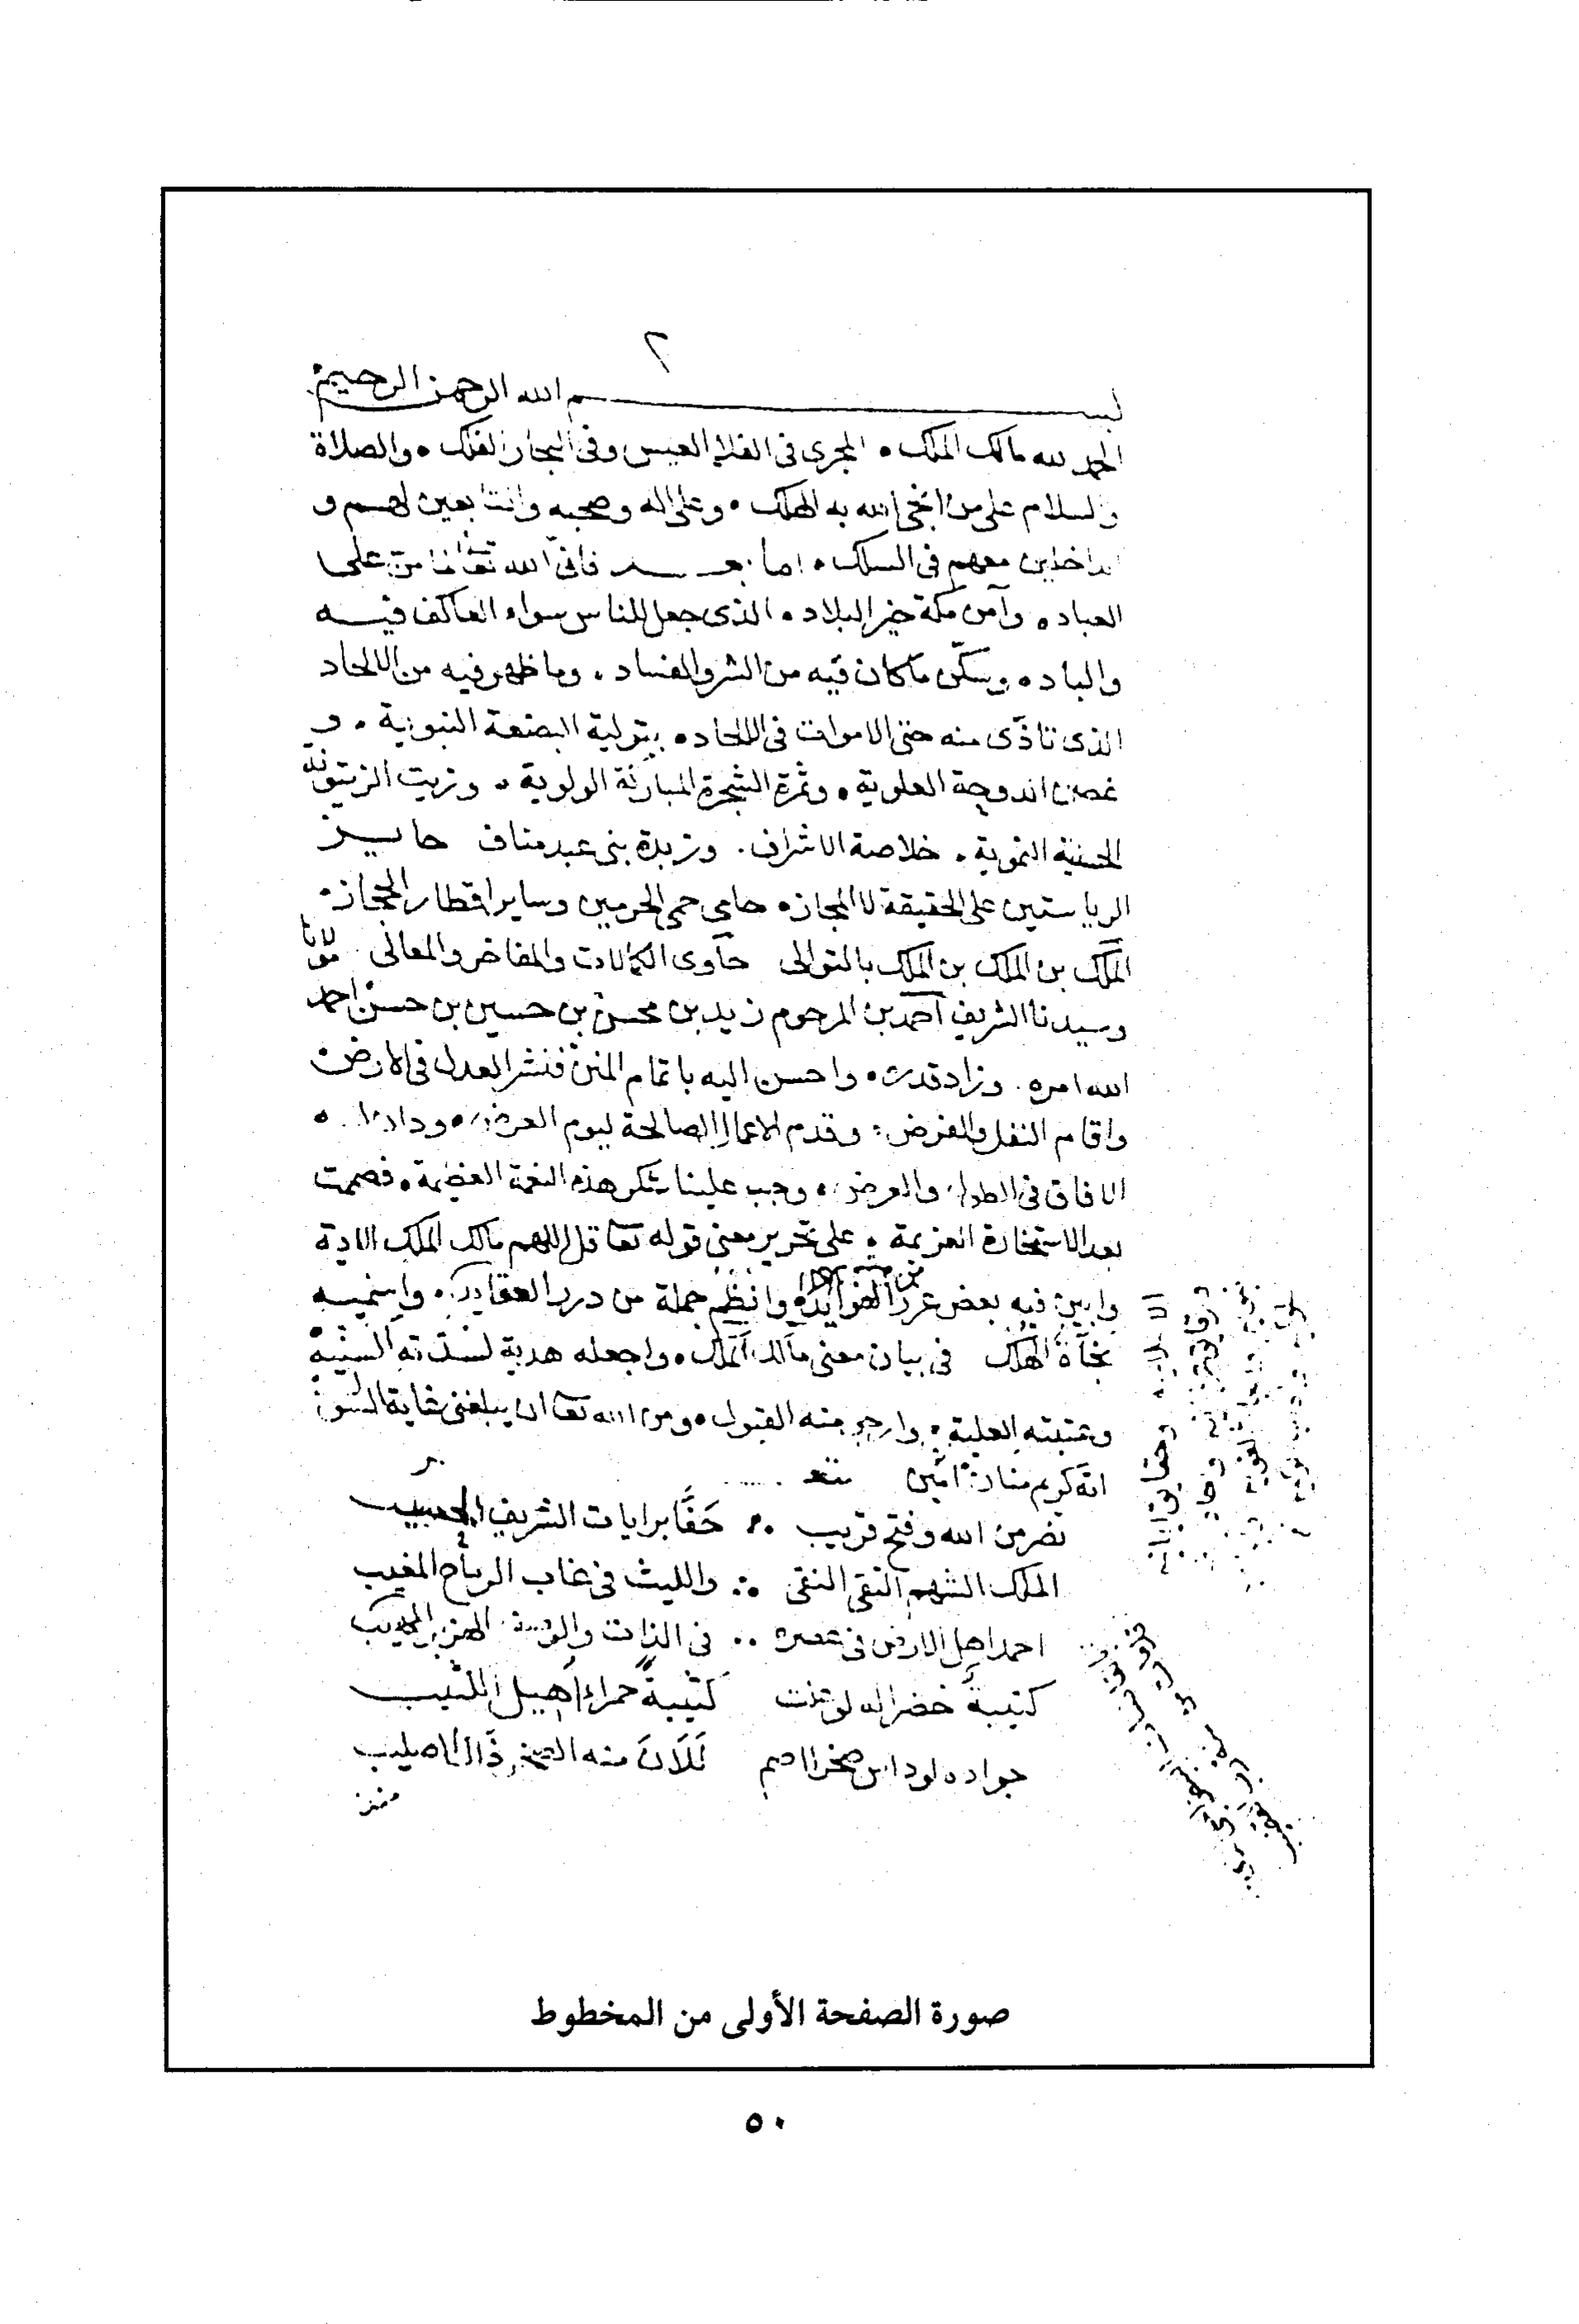 ٢
بسم الله الرحمن الرحيم
الحمد لله مالك الملك . المجرى فى الفلا العيس وفى البحار الفلك . والصلاة
والسلام على من انجى الله به الهلك . وعلى اله وصحبه والتابعين لهم و
الداخلين معهم فى السلك . اما بعد فان الله تعالى لما من على
العباد . وآمن مكة خير البلاد . الذى جعل للناس سواء العاكف فيه
والباد . وسكّن ما كان فيه من الشر والفساد . وما ظهر فيه من الالحاد
الذى تاذّى منه حتى الاموات فى الالحاد . بتولية البضعة النبوية . و
غصن الدوحة العلوية . وثمرة الشجرة المباركة الولوية . وزيت الزيتونة
الحسنية النموية . خلاصة الاشراف . وزبدة بنى عبد مناف حايز
الرياستين على الحقيقة لا المجاز . حامى حمى الحرمين وساير اقطار الحجاز .
الملك بن الملك بن الملك بالتوالى حاوى الكمالات والمفاخر والمعالى مولانا
وسيدنا الشريف احمد بن المرحوم زيد بن محسن بن حسين بن حسن احمد
الله امره . وزاد قدره . واحسن اليه باتمام المنن فنشر العدل فى الارض
واقام النفل والفرض . وقدم الاعمال الصالحة ليوم العرض .
الافاق فى الطول والعرض . وجب علينا شكر هذه النعمة العظيمة . فصممت
بعد الاستخارة العزيمة . على تحرير معنى قوله تعا قل اللهم مالك الملك الاية
وابين فيه بعض غرر الفوايد وانظم جملة من درر العقايد . واسميه
نجاة الهلك فى بيان معنى مالك الملك . واجعله هدية لسدته السنية
وعتبته العلية . وارجو منه القبول . ومن الله تعا ان يبلغنى غاية السول
انه كريم منان امين
نصر من الله وفتح قريب حَقًّا برايات الشريف الحسيب
الملك الشهم التقى النقى والليث فى غاب الرماح المغيب
احمد اهل الارض فى عصره فى الذات و الهزبر المهيب
كتيبة خضر كتيبةً حمراء اهيل الكثيب
جواده لوداس صخرا اصم لَلَانَ منه الصخر ذاك الصليب
صورة الصفحة الأولى من المخطوط
٥٠